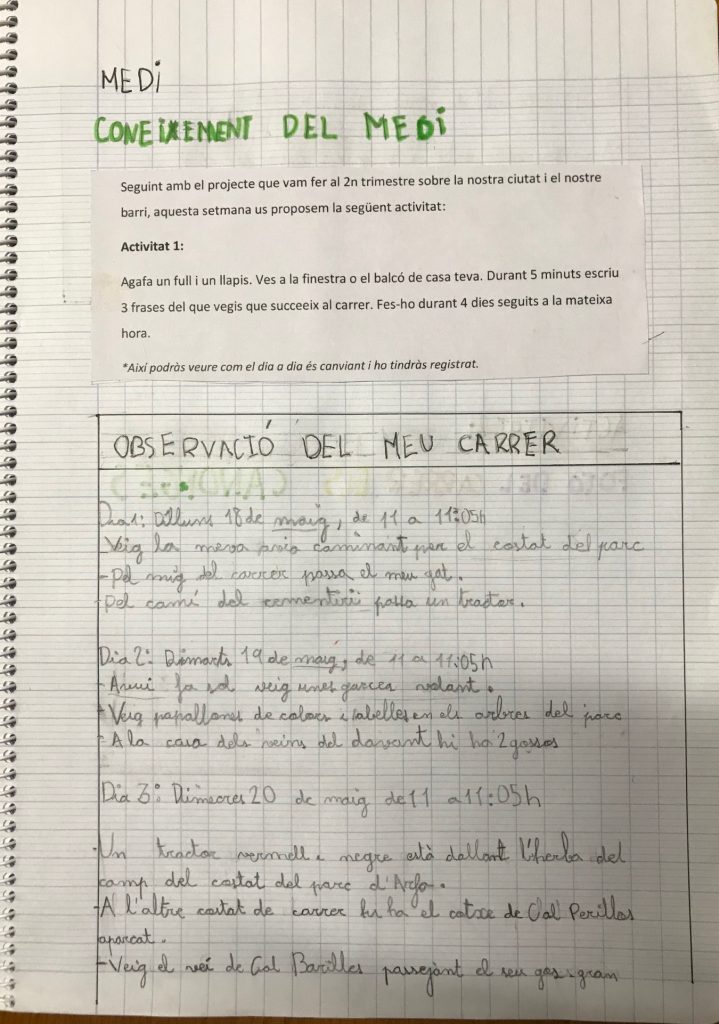 MEDi
CONEiXEMENT DEL MEDi
Seguint amb el projecte que vam fer al 2n trimestre sobre la nostra ciutat i el nostre
barri, aquesta setmana us proposem la següent activitat:
Activitat 1:
Agafa un full i un llapis. Ves a la finestra o el balcó de casa teva. Durant 5 minuts escriu
3 frases del que vegis que succeeix al carrer. Fes-ho durant 4 dies seguits a la mateixa
hora.
*Així podràs veure com el dia a dia és canviant i ho tindràs registrat.
OBSERVACIÓ DEL MEU CARRER
Dia 1: Dilluns 18 de maig, de 11 a 11:05h
-Veig la meva caminant per el costat del parc
-Pel mig del carrer passa el meu gat.
-Pel camí del cementiri passa un tractor.
Dia 2: Dimarts 19 de maig, de 11 a 11:05h
-Avui fa sol veig unes garces volant.
-Veig papallones de colors i abelles en els arbres del parc
-A la casa dels veins del davant hi ha 2 gossos
Dia 3: Dimecres 20 de maig de 11 a 11:05h
-Un tractor vermell i negre està dallant l'herba del
camp del costat del parc d'
-A l'altre costat de carrer hi ha el cotxe de Cal Perillos
aparcat.
-Veig el veí de Cal Barilles passejànt el seu gos gran